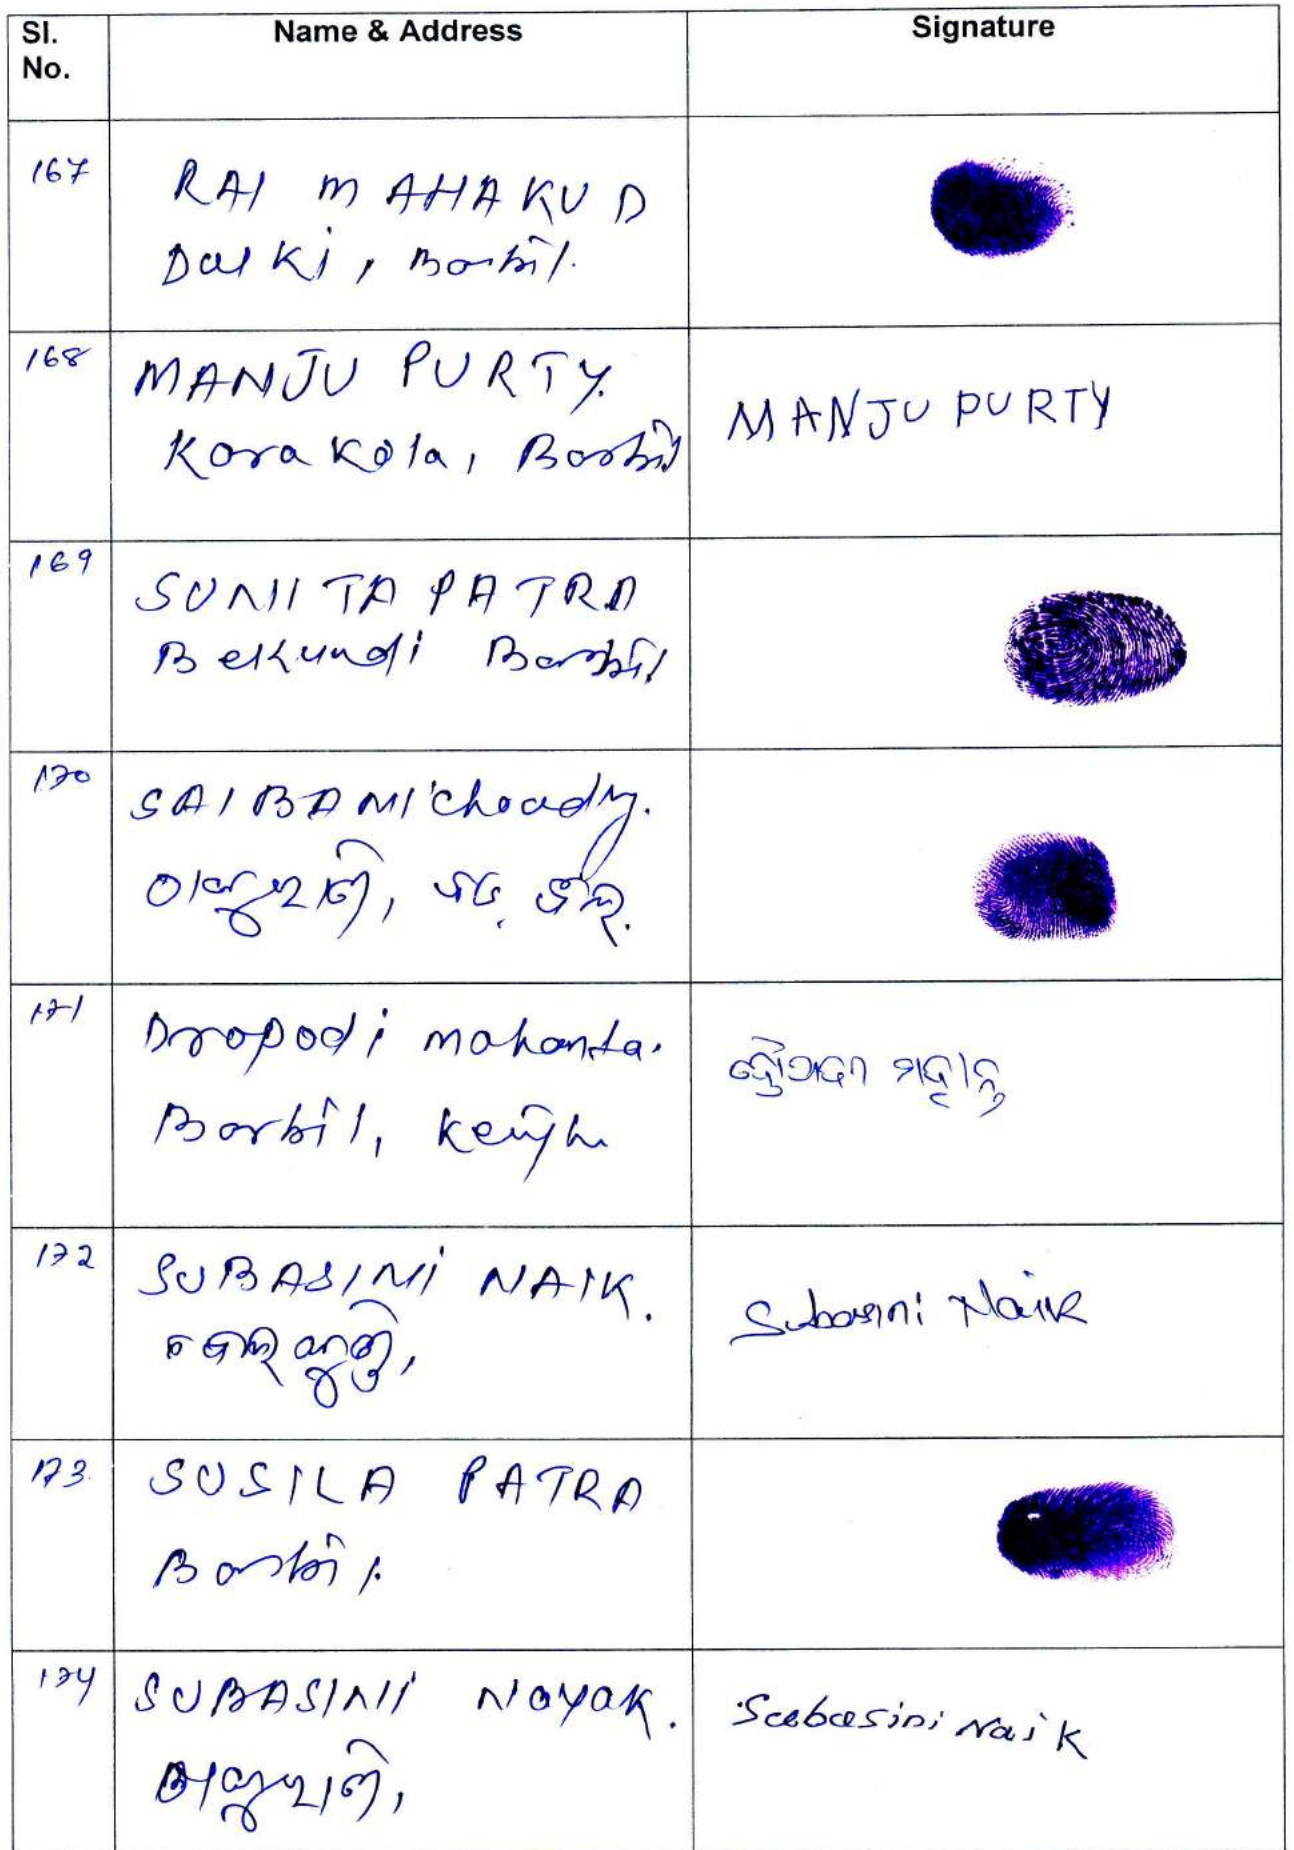 Sl. No.
Name & Address
Signature
167
RAI MAHAKUD
Dalki, Barbil.
168
MANJU PURTY.
Korakola, Barbil
MANJU PURTY
169
SUNITA PATRA
Belkundi Barbil
170
SAIBANI Choudhry.
171
Dropodi mohanta.
Barbil, Kenjhr
ଦ୍ରୌପଦୀ ମହାନ୍ତ
172
SUBASINI NAIK.
Subasini Naik
173.
SUSILA PATRA
Barbil.
174
SUBASINI NAYAK.
Subasini Naik